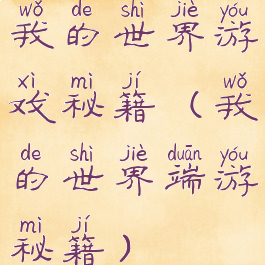 wǒ de shì jiè yóu
我的世界游
xì mì jí wǒ
戏秘籍（我
de shì jiè duān yóu
的世界端游
mì jí
秘籍）